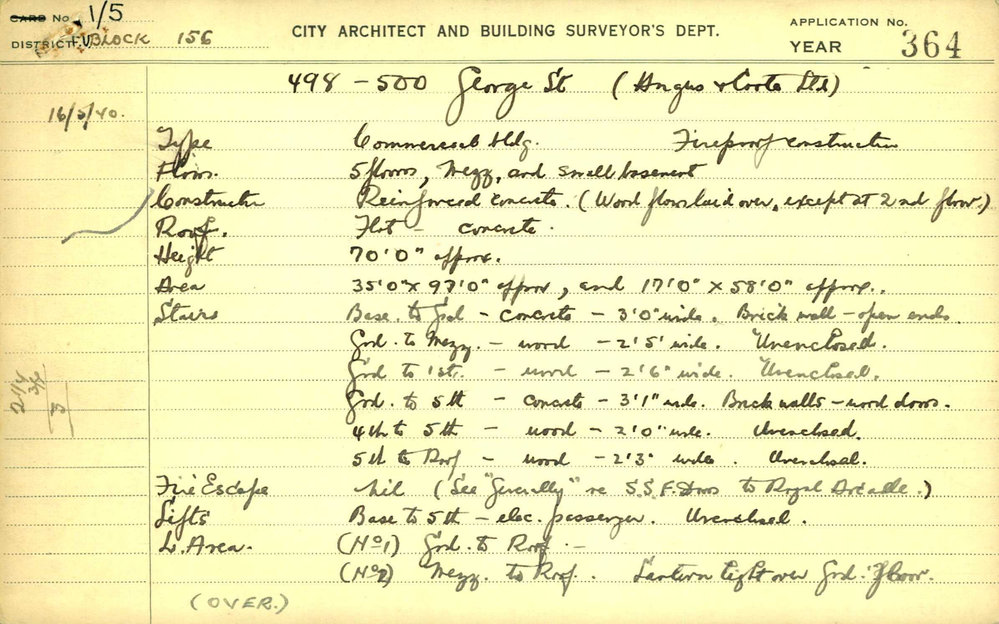 CARD No. 1/5
DISTRICT BLOCK 156
CITY ARCHITECT AND BUILDING SURVEYOR'S DEPT.
APPLICATION No.
YEAR 364
498 - 500 George St (Angus & Coote Ltd)
16/5/40.
Type Commercial bldg. Fireproof construction
Floors. 5 floors, Mezz, and small basement
Constructn Reinforced concrete. (Wood floors laid over, except at 2nd floor.)
Roof. Flat - concrete.
Height 70'0" approx.
Area 35'0" x 97'0" approx, and 17'0" x 58'0" approx.
Stairs Base. to Grd - concrete - 3'0" wide. Brick wall - open ends.
Grd. to Mezz. - wood - 2'5" wide. Unenclosed.
Grd to 1st. - wood - 2'6" wide. Unenclosed.
Grd. to 5th - concrete - 3'1" wide. Brick walls - wood doors.
4th to 5th - wood - 2'0" wide. Unenclosed.
5th to Roof - wood - 2'3" wide. Unenclosed.
Fire Escape Nil (See "Generally" re S.S.F. Doors to Royal Arcade.)
Lifts Base to 5th - elec. passenger. Unenclosed.
L. Area. (No 1) Grd. to Roof -
(No 2) Mezz. to Roof. Lantern light over Grd. Floor.
(OVER.)